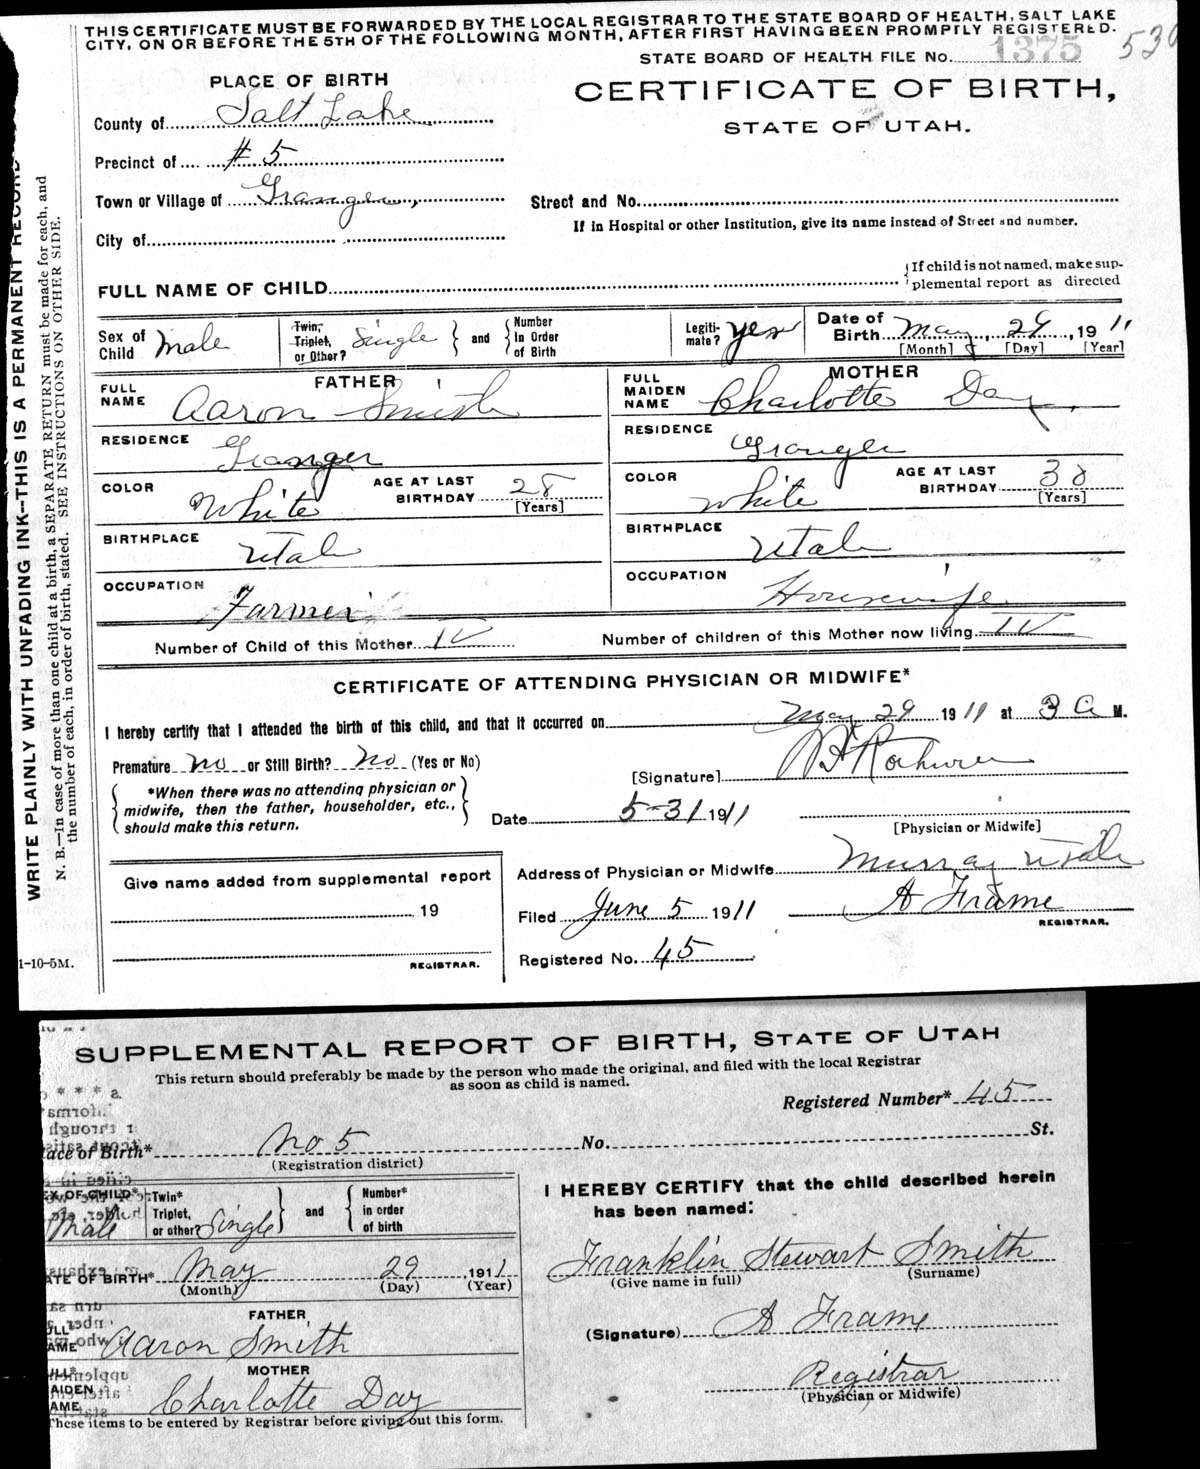 THIS CERTIFICATE MUST BE FORWARDED BY THE LOCAL REGISTRAR TO THE STATE BOARD OF HEALTH, SALT LAKE
CITY, ON OR BEFORE THE 5TH OF THE FOLLOWING MONTH, AFTER FIRST HAVING BEEN PROMPTLY REGISTERED.
STATE BOARD OF HEALTH FILE No. 1375 530
PLACE OF BIRTH
CERTIFICATE OF BIRTH,
STATE OF UTAH.
County of Salt Lake
Precinct of # 5
Town or Village of Granger,
Street and No.
If in Hospital or other Institution, give its name instead of Street and number.
City of
FULL NAME OF CHILD
If child is not named, make sup-
plemental report as directed
Sex of Child Male
Twin, Triplet, or Other? Single and Number In Order of Birth
Legiti-mate? yes
Date of Birth May, 29, 1911
[Month] [Day] [Year]
FATHER
FULL NAME Aaron Smith
MOTHER
FULL MAIDEN NAME Charlotte Day
RESIDENCE Granger
RESIDENCE Granger
COLOR White AGE AT LAST BIRTHDAY 28 [Years]
COLOR White AGE AT LAST BIRTHDAY 30 [Years]
BIRTHPLACE Utah
BIRTHPLACE Utah
OCCUPATION Farmer
OCCUPATION Housewife
Number of Child of this Mother IV
Number of children of this Mother now living IV
CERTIFICATE OF ATTENDING PHYSICIAN OR MIDWIFE*
I hereby certify that I attended the birth of this child, and that it occurred on May 29 1911 at 3 A M.
Premature no or Still Birth? no (Yes or No)
[Signature]
*When there was no attending physician or
midwife, then the father, householder, etc.,
should make this return.
Date 5-31 1911
[Physician or Midwife]
Address of Physician or Midwife Murray Utah
Give name added from supplemental report
19
REGISTRAR.
Filed June 5 1911
A Frame
REGISTRAR.
Registered No. 45
WRITE PLAINLY WITH UNFADING INK--THIS IS A PERMANENT RECORD
N. B.—In case of more than one child at a birth, a SEPARATE RETURN must be made for each, and
the number of each, in order of birth, stated. SEE INSTRUCTIONS ON OTHER SIDE.
1-10-5M.
SUPPLEMENTAL REPORT OF BIRTH, STATE OF UTAH
This return should preferably be made by the person who made the original, and filed with the local Registrar
as soon as child is named.
Registered Number* 45
lace of Birth* No 5 No. St.
(Registration district)
EX OF CHILD* Male
Twin* Triplet, or other? Single and Number* in order of birth
ATE OF BIRTH* May 29 1911
(Month) (Day) (Year)
FATHER
ULL* AME Aaron Smith
MOTHER
ULL* AIDEN AME Charlotte Day
These items to be entered by Registrar before giving out this form.
I HEREBY CERTIFY that the child described herein
has been named:
Franklin Stewart Smith
(Give name in full) (Surname)
(Signature) A Frame
Registrar
(Physician or Midwife)